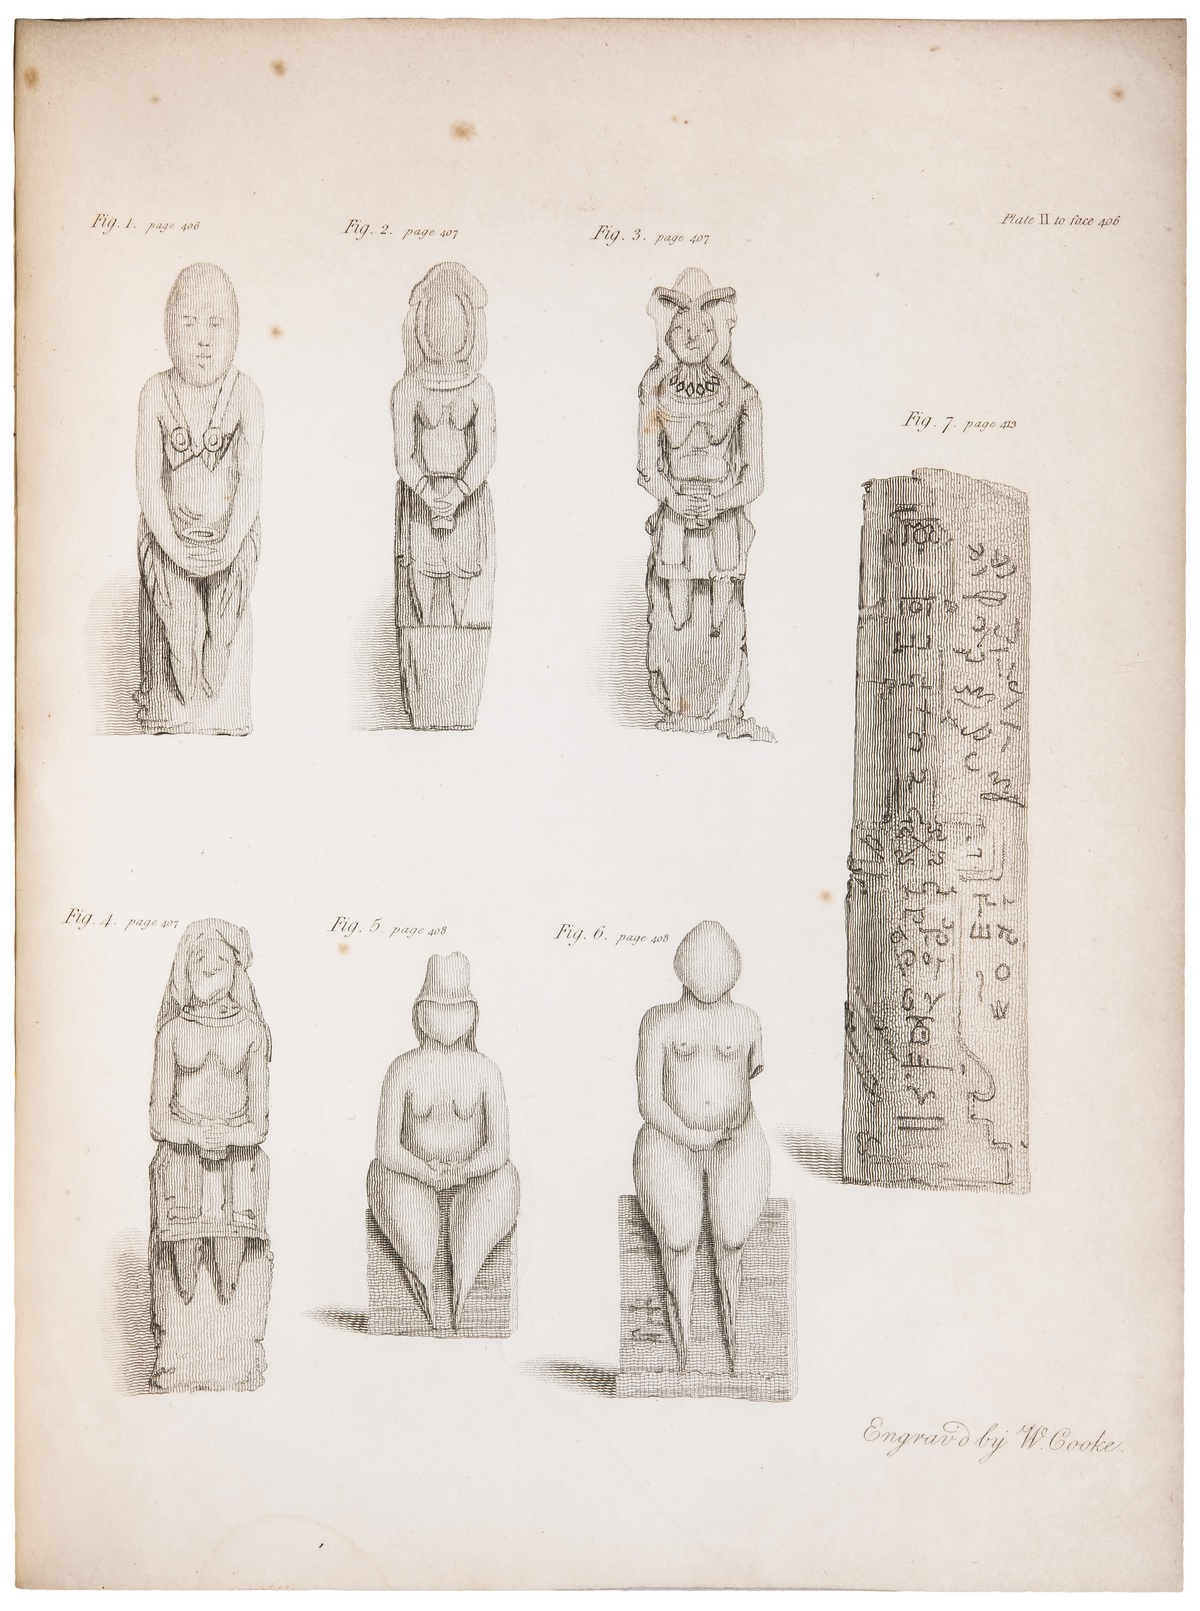 Fig. 1. page 406
Fig. 2. page 407
Fig. 3. page 407
Plate II to face 406
Fig. 7. page 413
Fig. 4. page 407
Fig. 5. page 408
Fig. 6. page 408
Engrav'd by W. Cooke.